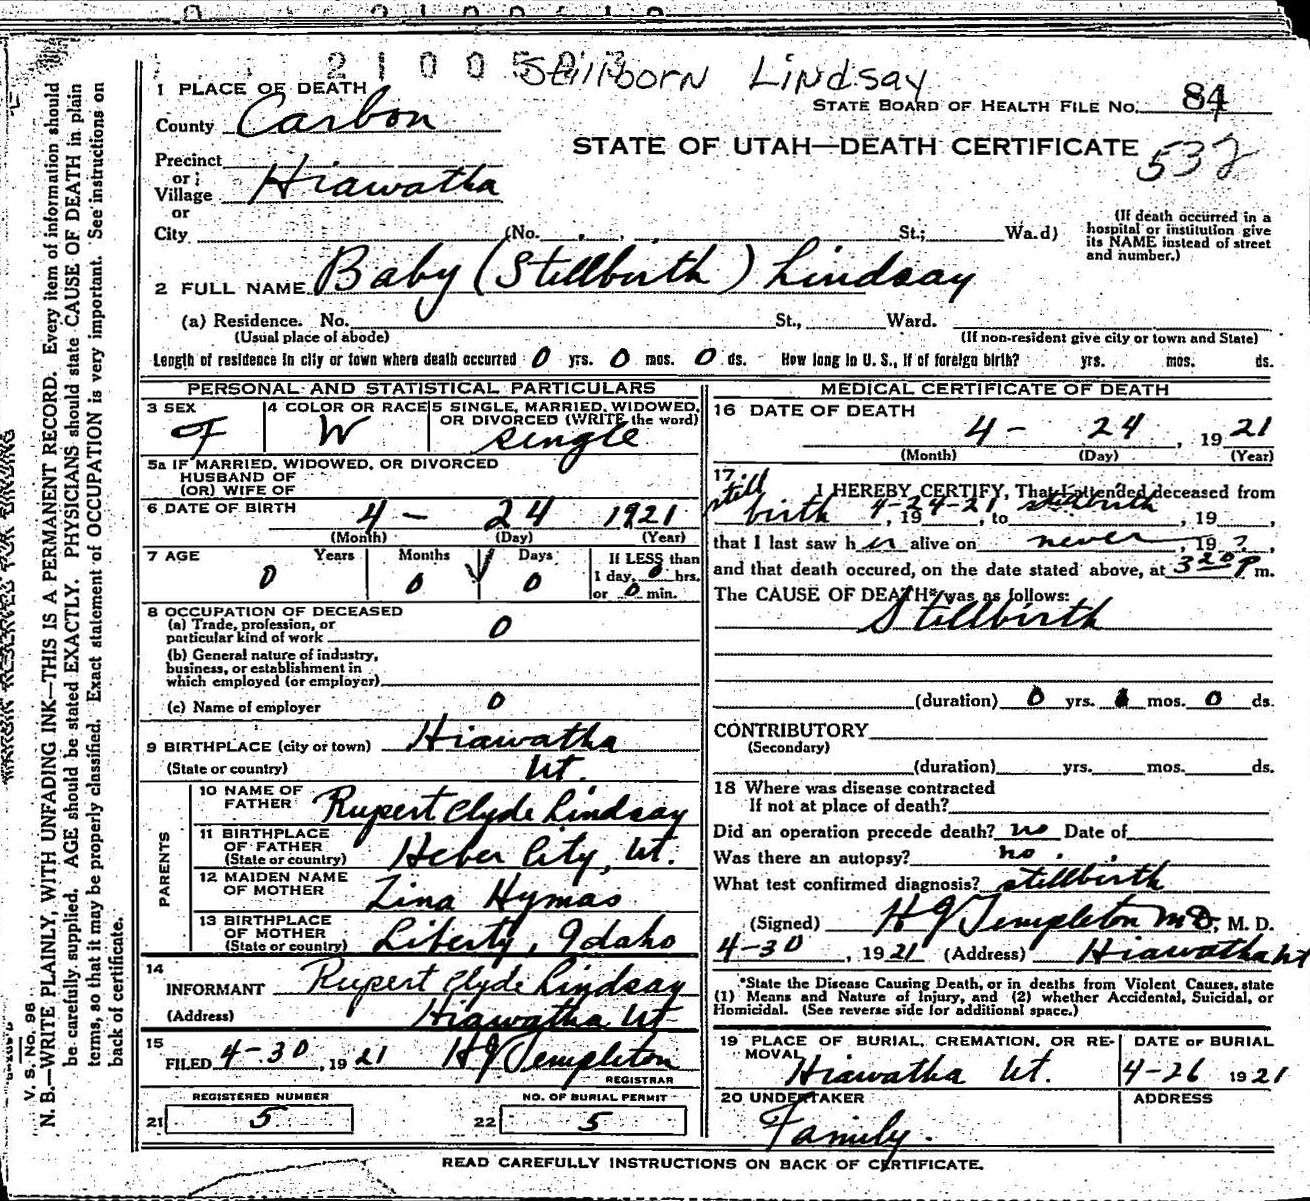 2 1 0 0 5 Stillborn Lindsay
1 PLACE OF DEATH
STATE BOARD OF HEALTH FILE No. 84
County Carbon
STATE OF UTAH—DEATH CERTIFICATE
532
Precinct
or
Village Hiawatha
or
City (No. St.; Wa.d)
(If death occurred in a
hospital or institution give
its NAME instead of street
and number.)
2 FULL NAME Baby (Stillbirth) Lindsay
(a) Residence. No. St., Ward.
(Usual place of abode) (If non-resident give city or town and State)
Length of residence in city or town where death occurred 0 yrs. 0 mos. 0 ds. How long in U. S., if of foreign birth? yrs. mos. ds.
PERSONAL AND STATISTICAL PARTICULARS
3 SEX F
4 COLOR OR RACE W
5 SINGLE, MARRIED, WIDOWED,
OR DIVORCED (WRITE the word)
single
5a IF MARRIED, WIDOWED, OR DIVORCED
HUSBAND OF
(OR) WIFE OF
6 DATE OF BIRTH 4 - 24 1921
(Month) (Day) (Year)
7 AGE Years Months Days
0 0 0
If LESS than
1 day, 0 hrs.
or 0 min.
8 OCCUPATION OF DECEASED
(a) Trade, profession, or
particular kind of work 0
(b) General nature of industry,
business, or establishment in
which employed (or employer)
(c) Name of employer 0
9 BIRTHPLACE (city or town) Hiawatha
(State or country) Ut.
PARENTS
10 NAME OF
FATHER Rupert Clyde Lindsay
11 BIRTHPLACE
OF FATHER
(State or country) Heber City, Ut.
12 MAIDEN NAME
OF MOTHER Zina Hymas
13 BIRTHPLACE
OF MOTHER
(State or country) Liberty, Idaho
14
INFORMANT Rupert Clyde Lindsay
(Address) Hiawatha Ut
15
FILED 4-30, 1921 HJ Templeton
REGISTRAR
REGISTERED NUMBER
21 5
NO. OF BURIAL PERMIT
22 5
MEDICAL CERTIFICATE OF DEATH
16 DATE OF DEATH
4 - 24, 1921
(Month) (Day) (Year)
17
I HEREBY CERTIFY, That I attended deceased from
still birth 4-24-21, 19, to stillbirth, 19
that I last saw her alive on never, 19 ?,
and that death occured, on the date stated above, at 3 20 P m.
The CAUSE OF DEATH* was as follows:
Stillbirth
(duration) 0 yrs. mos. 0 ds.
CONTRIBUTORY
(Secondary)
(duration) yrs. mos. ds.
18 Where was disease contracted
If not at place of death?
Did an operation precede death? no Date of
Was there an autopsy? no
What test confirmed diagnosis? stillbirth
(Signed) HJ Templeton MD, M. D.
4-30, 1921 (Address) Hiawatha Ut
*State the Disease Causing Death, or in deaths from Violent Causes, state
(1) Means and Nature of Injury, and (2) whether Accidental, Suicidal, or
Homicidal. (See reverse side for additional space.)
19 PLACE OF BURIAL, CREMATION, OR RE-
MOVAL
Hiawatha Ut.
DATE OF BURIAL
4-26 1921
20 UNDERTAKER
Family.
ADDRESS
READ CAREFULLY INSTRUCTIONS ON BACK OF CERTIFICATE.
MARGIN RESERVED FOR BINDING
V. S. No. 98
N. B.—WRITE PLAINLY, WITH UNFADING INK—THIS IS A PERMANENT RECORD. Every item of information should
be carefully supplied. AGE should be stated EXACTLY. PHYSICIANS should state CAUSE OF DEATH in plain
terms, so that it may be properly classified. Exact statement of OCCUPATION is very important. See instructions on
back of certificate.